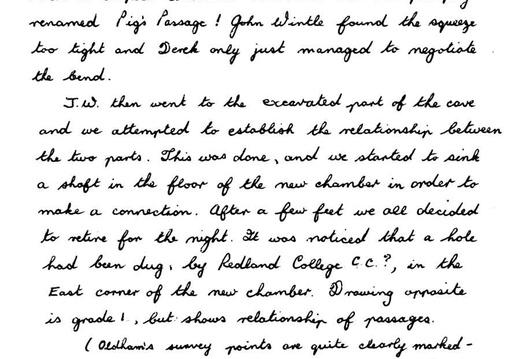 renamed Pig's Passage! John Wintle found the squeeze
too tight and Derek only just managed to negotiate
the bend.
J.W. then went to the excavated part of the cave
and we attempted to establish the relationship between
the two parts. This was done, and we started to sink
a shaft in the floor of the new chamber in order to
make a connection. After a few feet we all decided
to retire for the night. It was noticed that a hole
had been dug, by Redland College C.C.?, in the
East corner of the new chamber. Drawing opposite
is grade 1, but shows relationship of passages.
(Oldham's survey points are quite clearly marked -